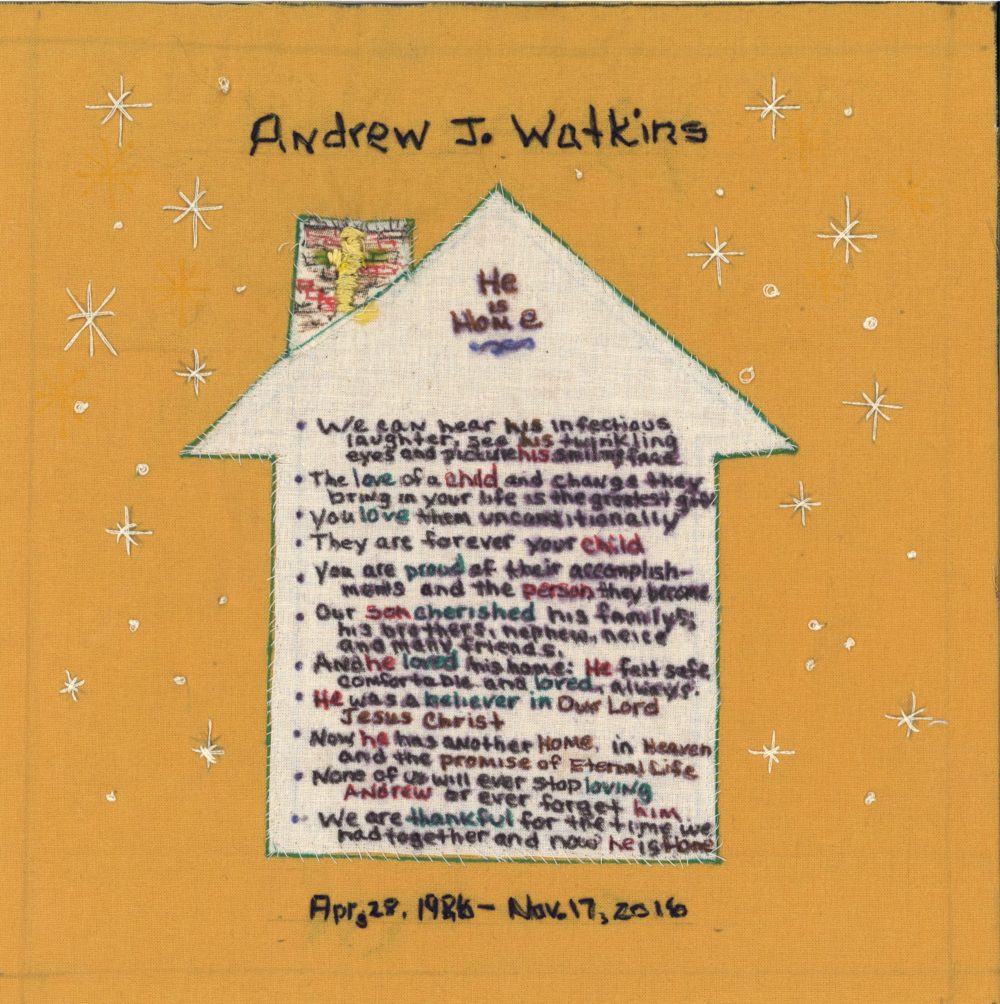 Andrew J. Watkins
He
is
Home
• We can hear his infectious
laughter, see his twinkling
eyes and picture his smiling face
• The love of a child and change they
bring in your life is the greatest gift
• You love them unconditionally
• They are forever your child
• You are proud of their accomplish-
ments and the person they become
• Our son cherished his family;
his brothers, nephew, neice
and many friends.
• And he loved his home: He felt safe
comfortable and loved, always.
• He was a believer in Our Lord
Jesus Christ
• Now he has another Home, in Heaven
and the promise of Eternal Life
• None of us will ever stop loving
Andrew or ever forget him
• We are thankful for the time we
had together and now he is Home
Apr, 28, 1986 - Nov. 17, 2016